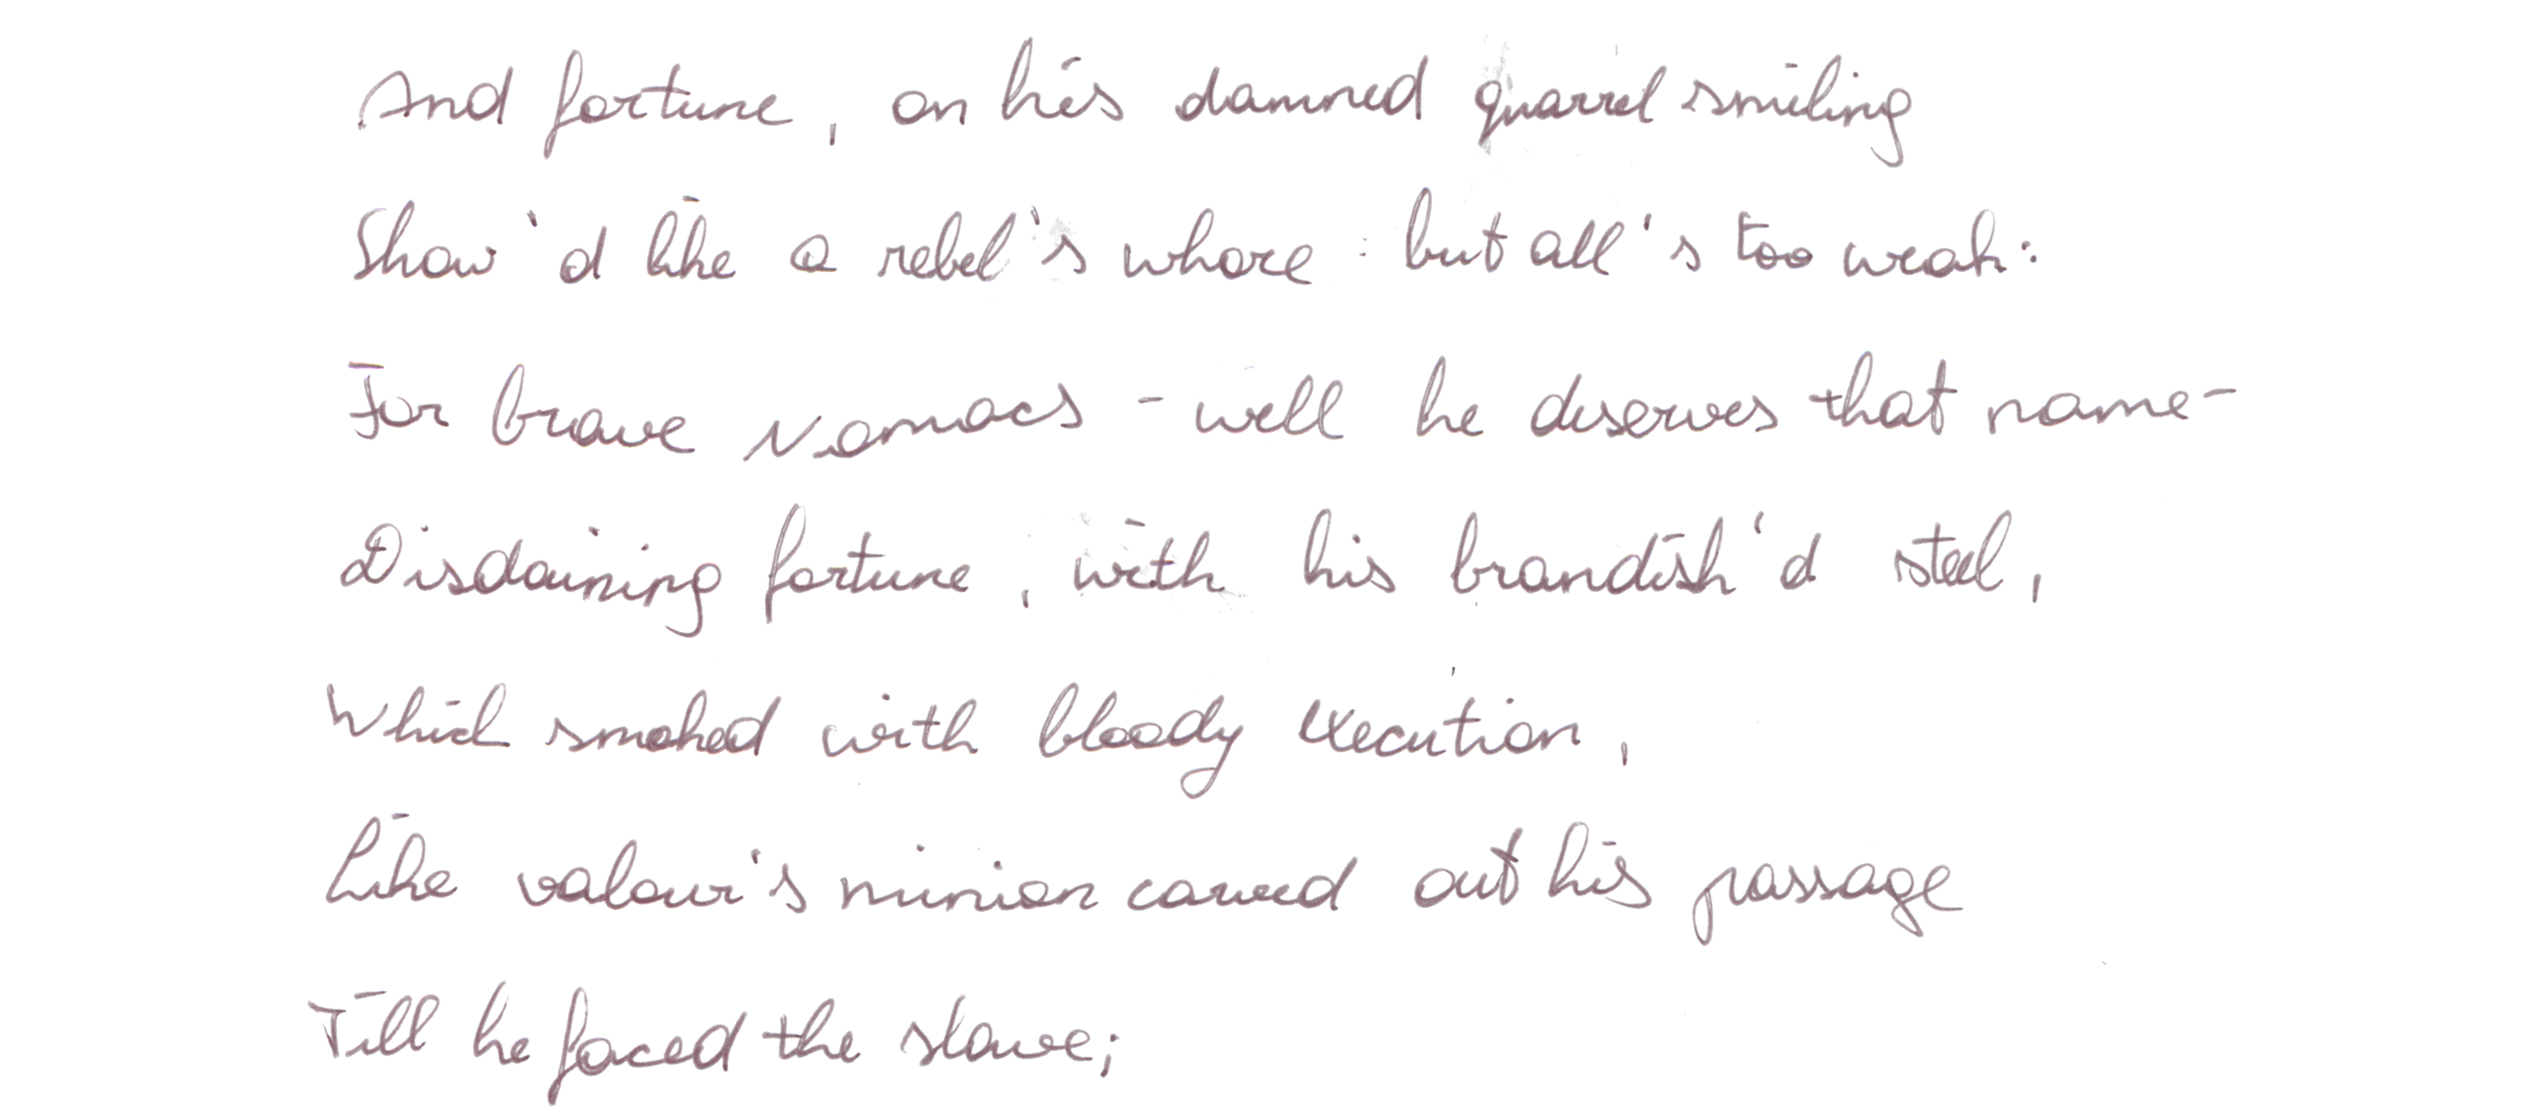 And fortune, on his damned quarrel smiling
Show'd like a rebel's whore : but all's too weak:
For brave Nomacs - well he deserves that name-
Disdaining fortune, with his brandish'd steel,
Which smoked with bloody execution,
Like valour's minion carved out his passage
Till he faced the slave;